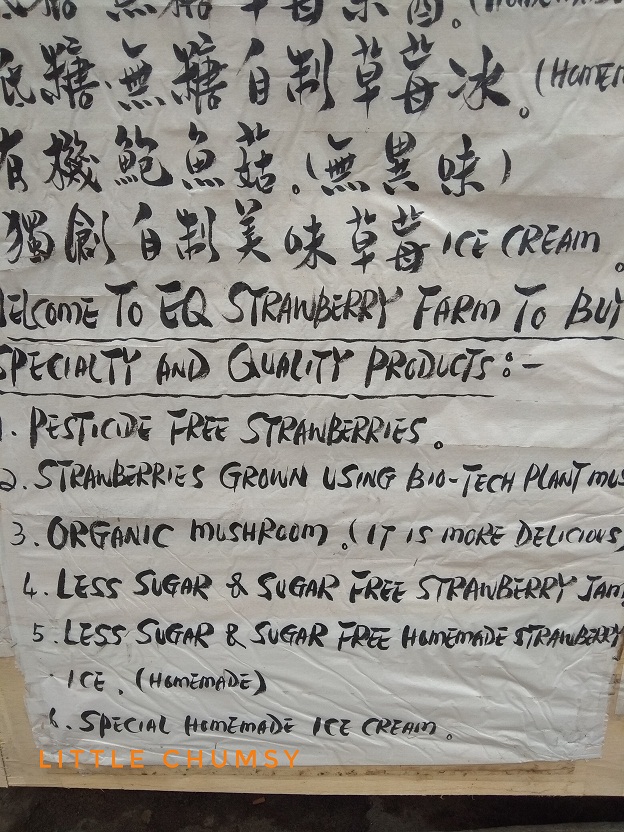 低糖無糖自制草莓冰。(HOMEM
有機鮑魚菇。(無異味)
獨創自制美味草莓 ICE CREAM。
WELCOME TO EQ STRAWBERRY FARM TO BUY
SPECIALTY AND QUALITY PRODUCTS:-
1. PESTICIDE FREE STRAWBERRIES.
2. STRAWBERRIES GROWN USING BIO-TECH PLANT MUS
3. ORGANIC MUSHROOM.(IT IS MORE DELICIOUS)
4. LESS SUGAR & SUGAR FREE STRAWBERRY JAM
5. LESS SUGAR & SUGAR FREE HOMEMADE STRAWBERRY
ICE. (HOMEMADE)
6. SPECIAL HOMEMADE ICE CREAM.
LITTLE CHUMSY